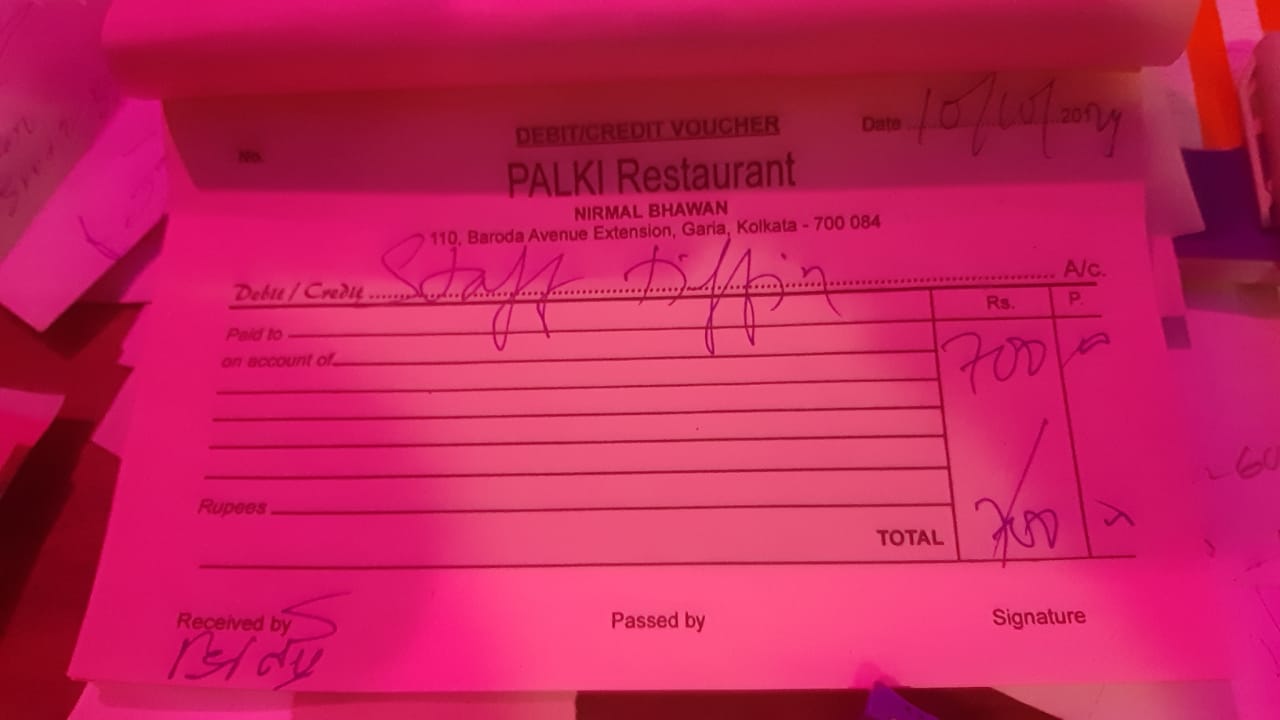 DEBIT/CREDIT VOUCHER
No.
Date 10/10/2024
PALKI Restaurant
NIRMAL BHAWAN
110, Baroda Avenue Extension, Garia, Kolkata - 700 084
Debit / Credit Staff Tiffin A/c.
Rs. P.
Paid to
700
on account of
Rupees
TOTAL 700
Received by
Passed by
Signature